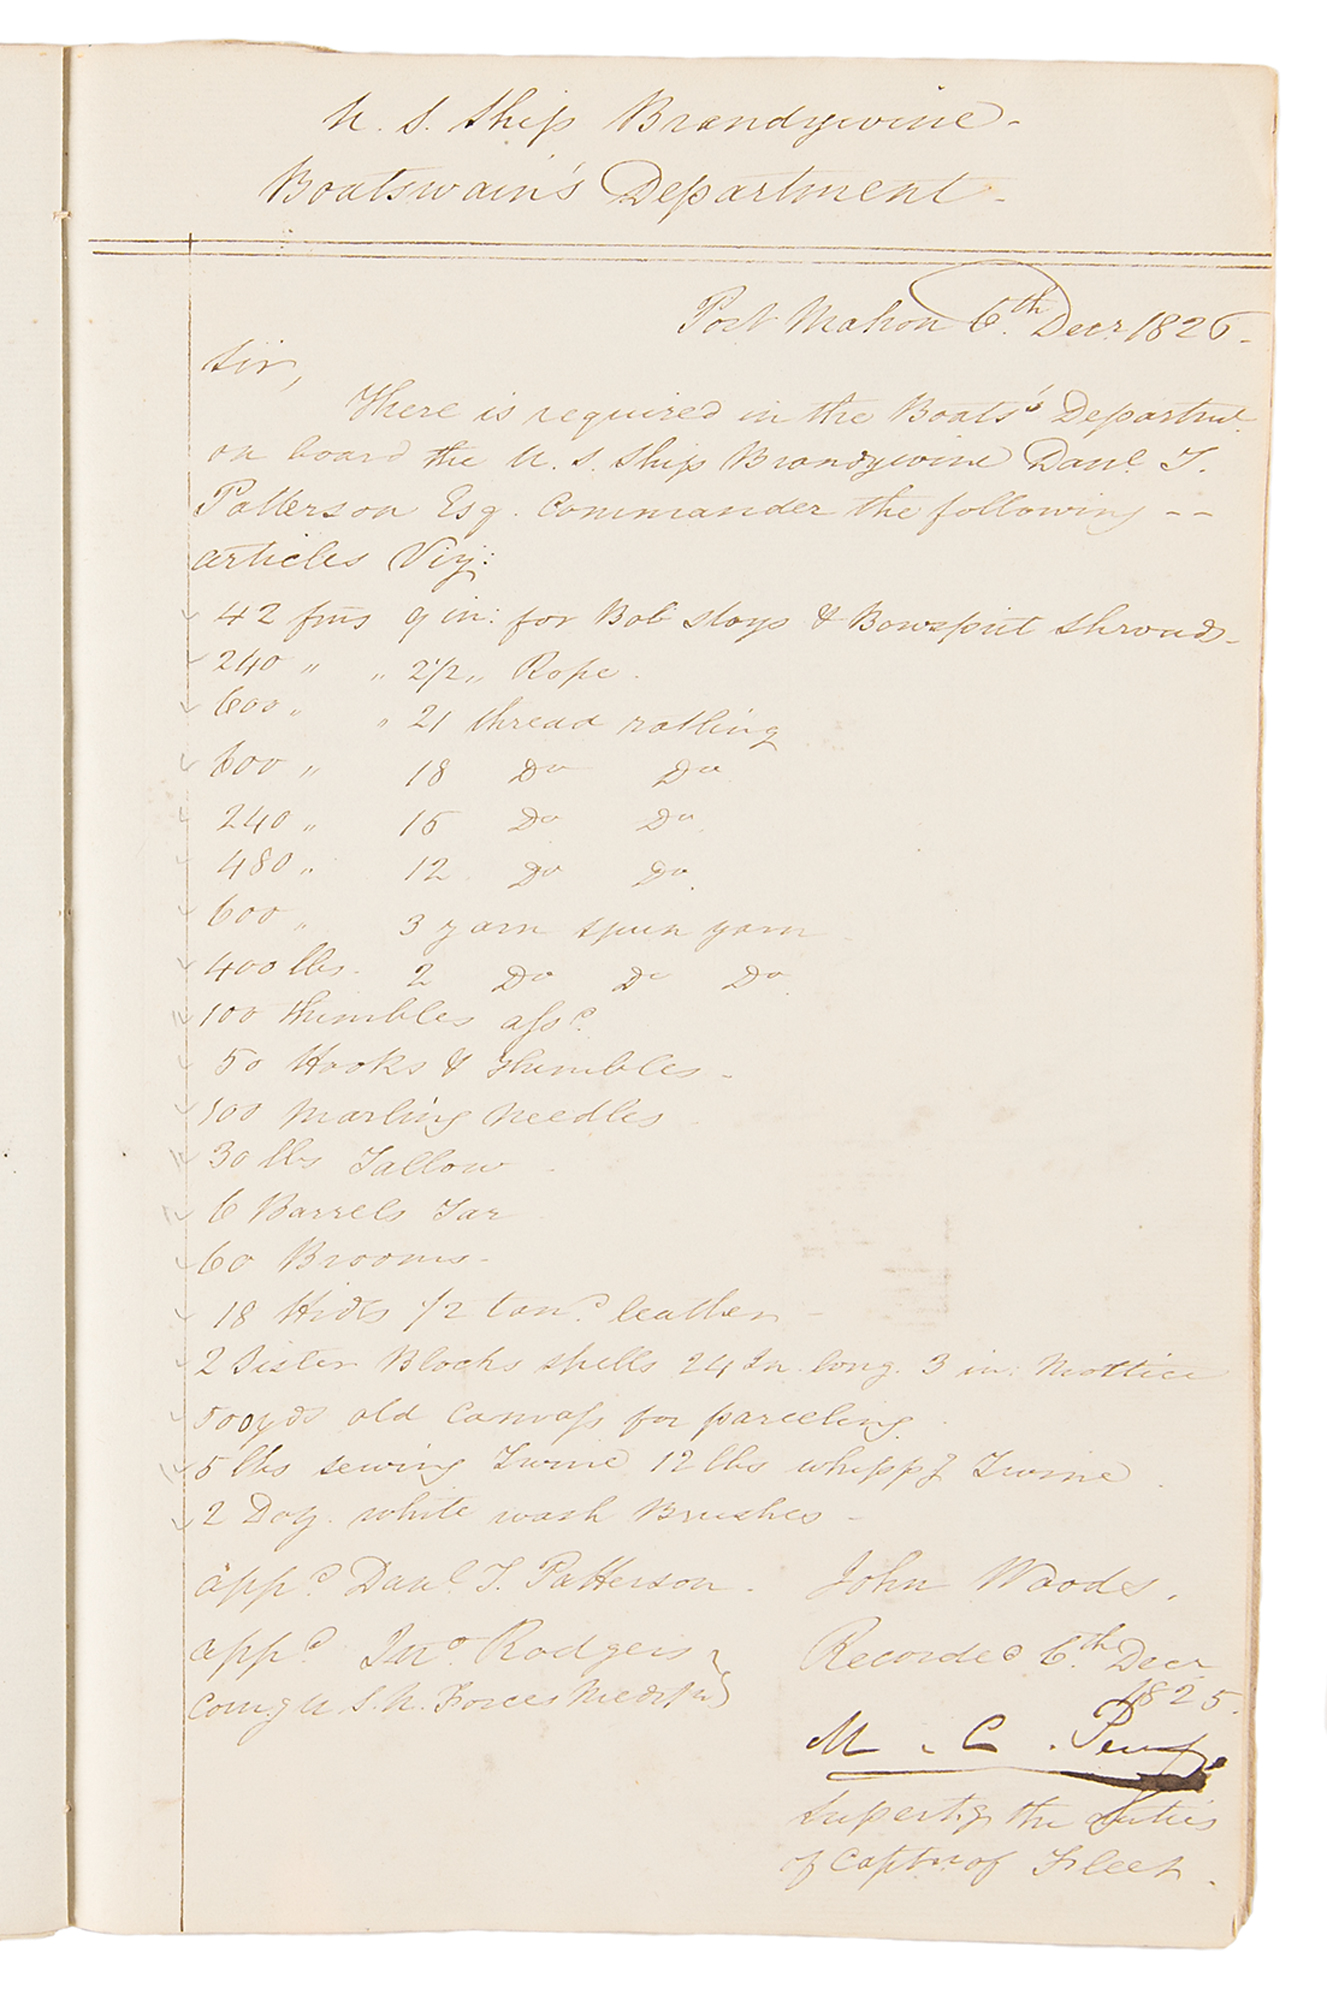 U. S. Ship Brandywine -
Boatswain's Department -
Port Mahon 6th Decr 1825 -
Sir,
There is required in the Boats's Departmt
on board the U. S. Ship Brandywine Danl. T.
Patterson Esq. Commander the following - -
articles Viz:
42 fms 9 in: for Bob stays & Bowsprit shrouds -
240 " " 2 1/2 " Rope.
600 " " 21 thread ratling
600 " 18 Do Do
240 " 15 Do Do
480 " 12 Do Do
600 " 3 yarn spun yarn
400 lbs. 2 Do Do Do
100 thimbles assd.
50 Hooks & Thimbles -
100 Marling Needles
30 lbs Tallow
6 Barrels Tar
60 Brooms -
18 Hides 1/2 tand. leather -
2 Sister Blocks shells 24 In. long. 3 in: Mortice
500 yds old Canvass for parceling
5 lbs sewing Twine 12 lbs whippg Twine
2 Doz. white wash Brushes -
appd. Danl. T. Patterson. John Woods.
appd. Jno. Rodgers
Comg U S. N. Forces Meditn
Recorded 6th Decr
1825.
M. C. Perry
superty. the duties
of Captn of Fleet.